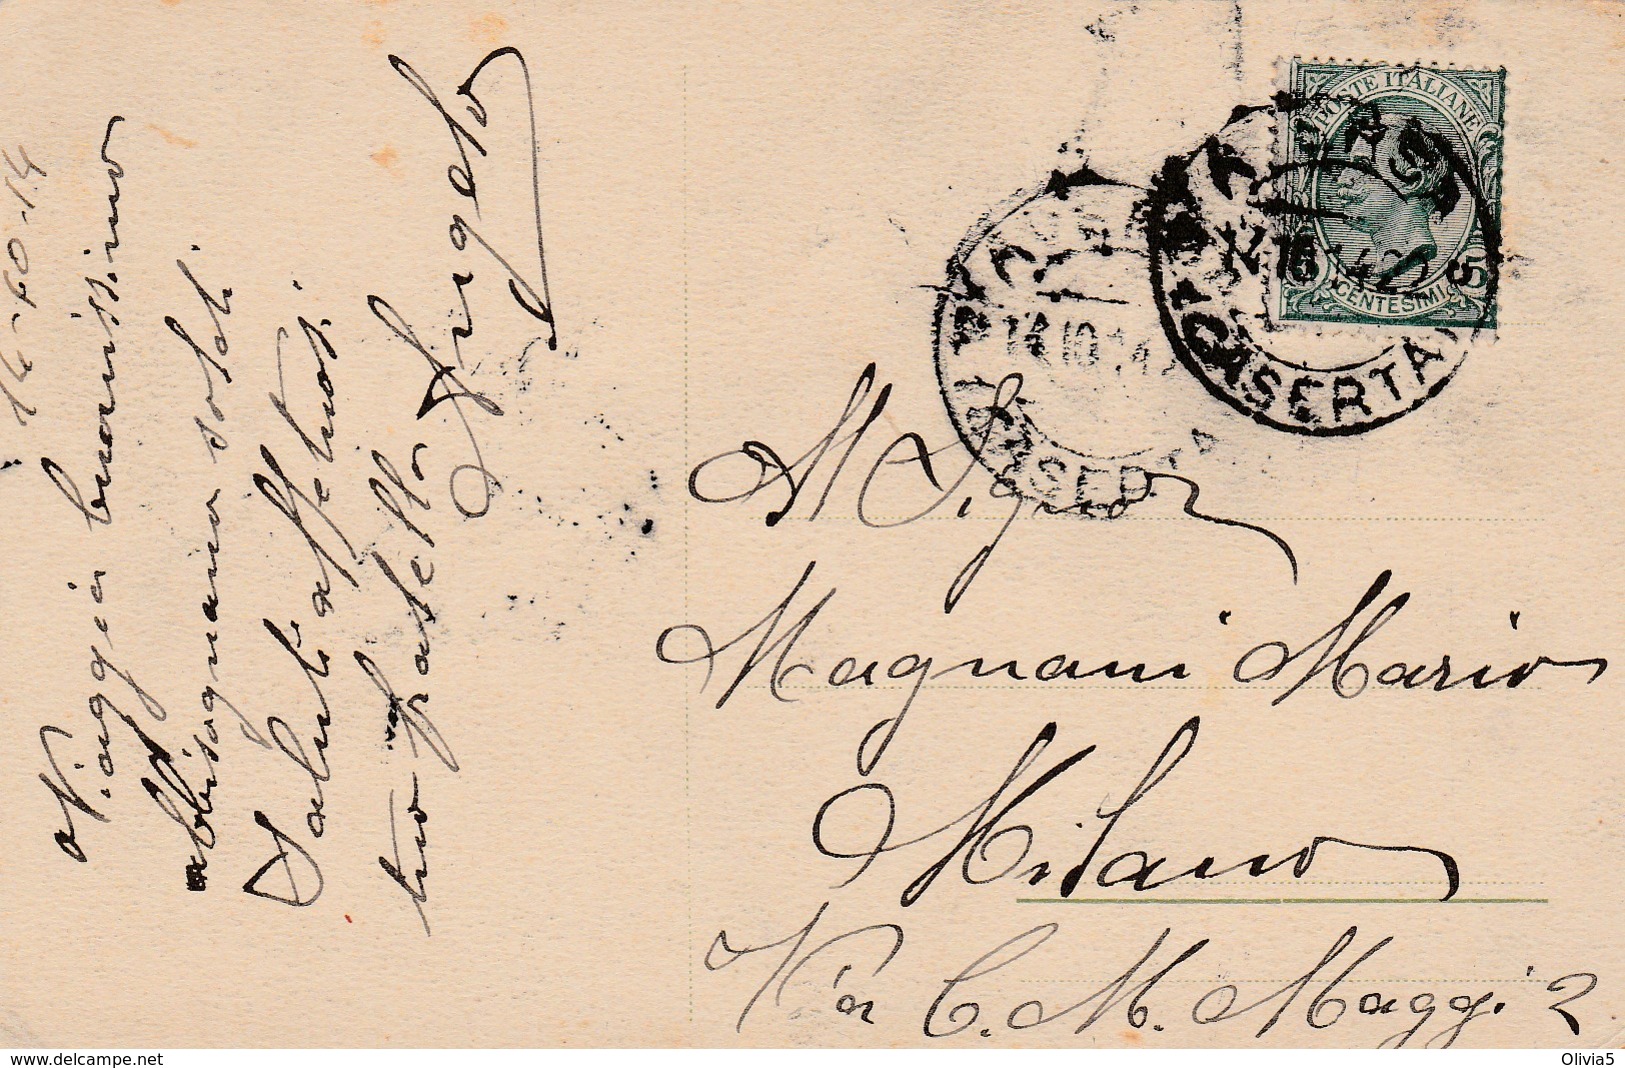 14-10-14
Viaggiò buonissimo
abbisognano soldi
Saluti affettuosi
tuo fratello
Angelo
POSTE ITALIANE
CENTESIMI
5
CASERTA
14.10.14
CASERTA
Al Signor
Magnani Mario
Milano
Via C. M. Maggi 2
www.delcampe.net
Olivia5